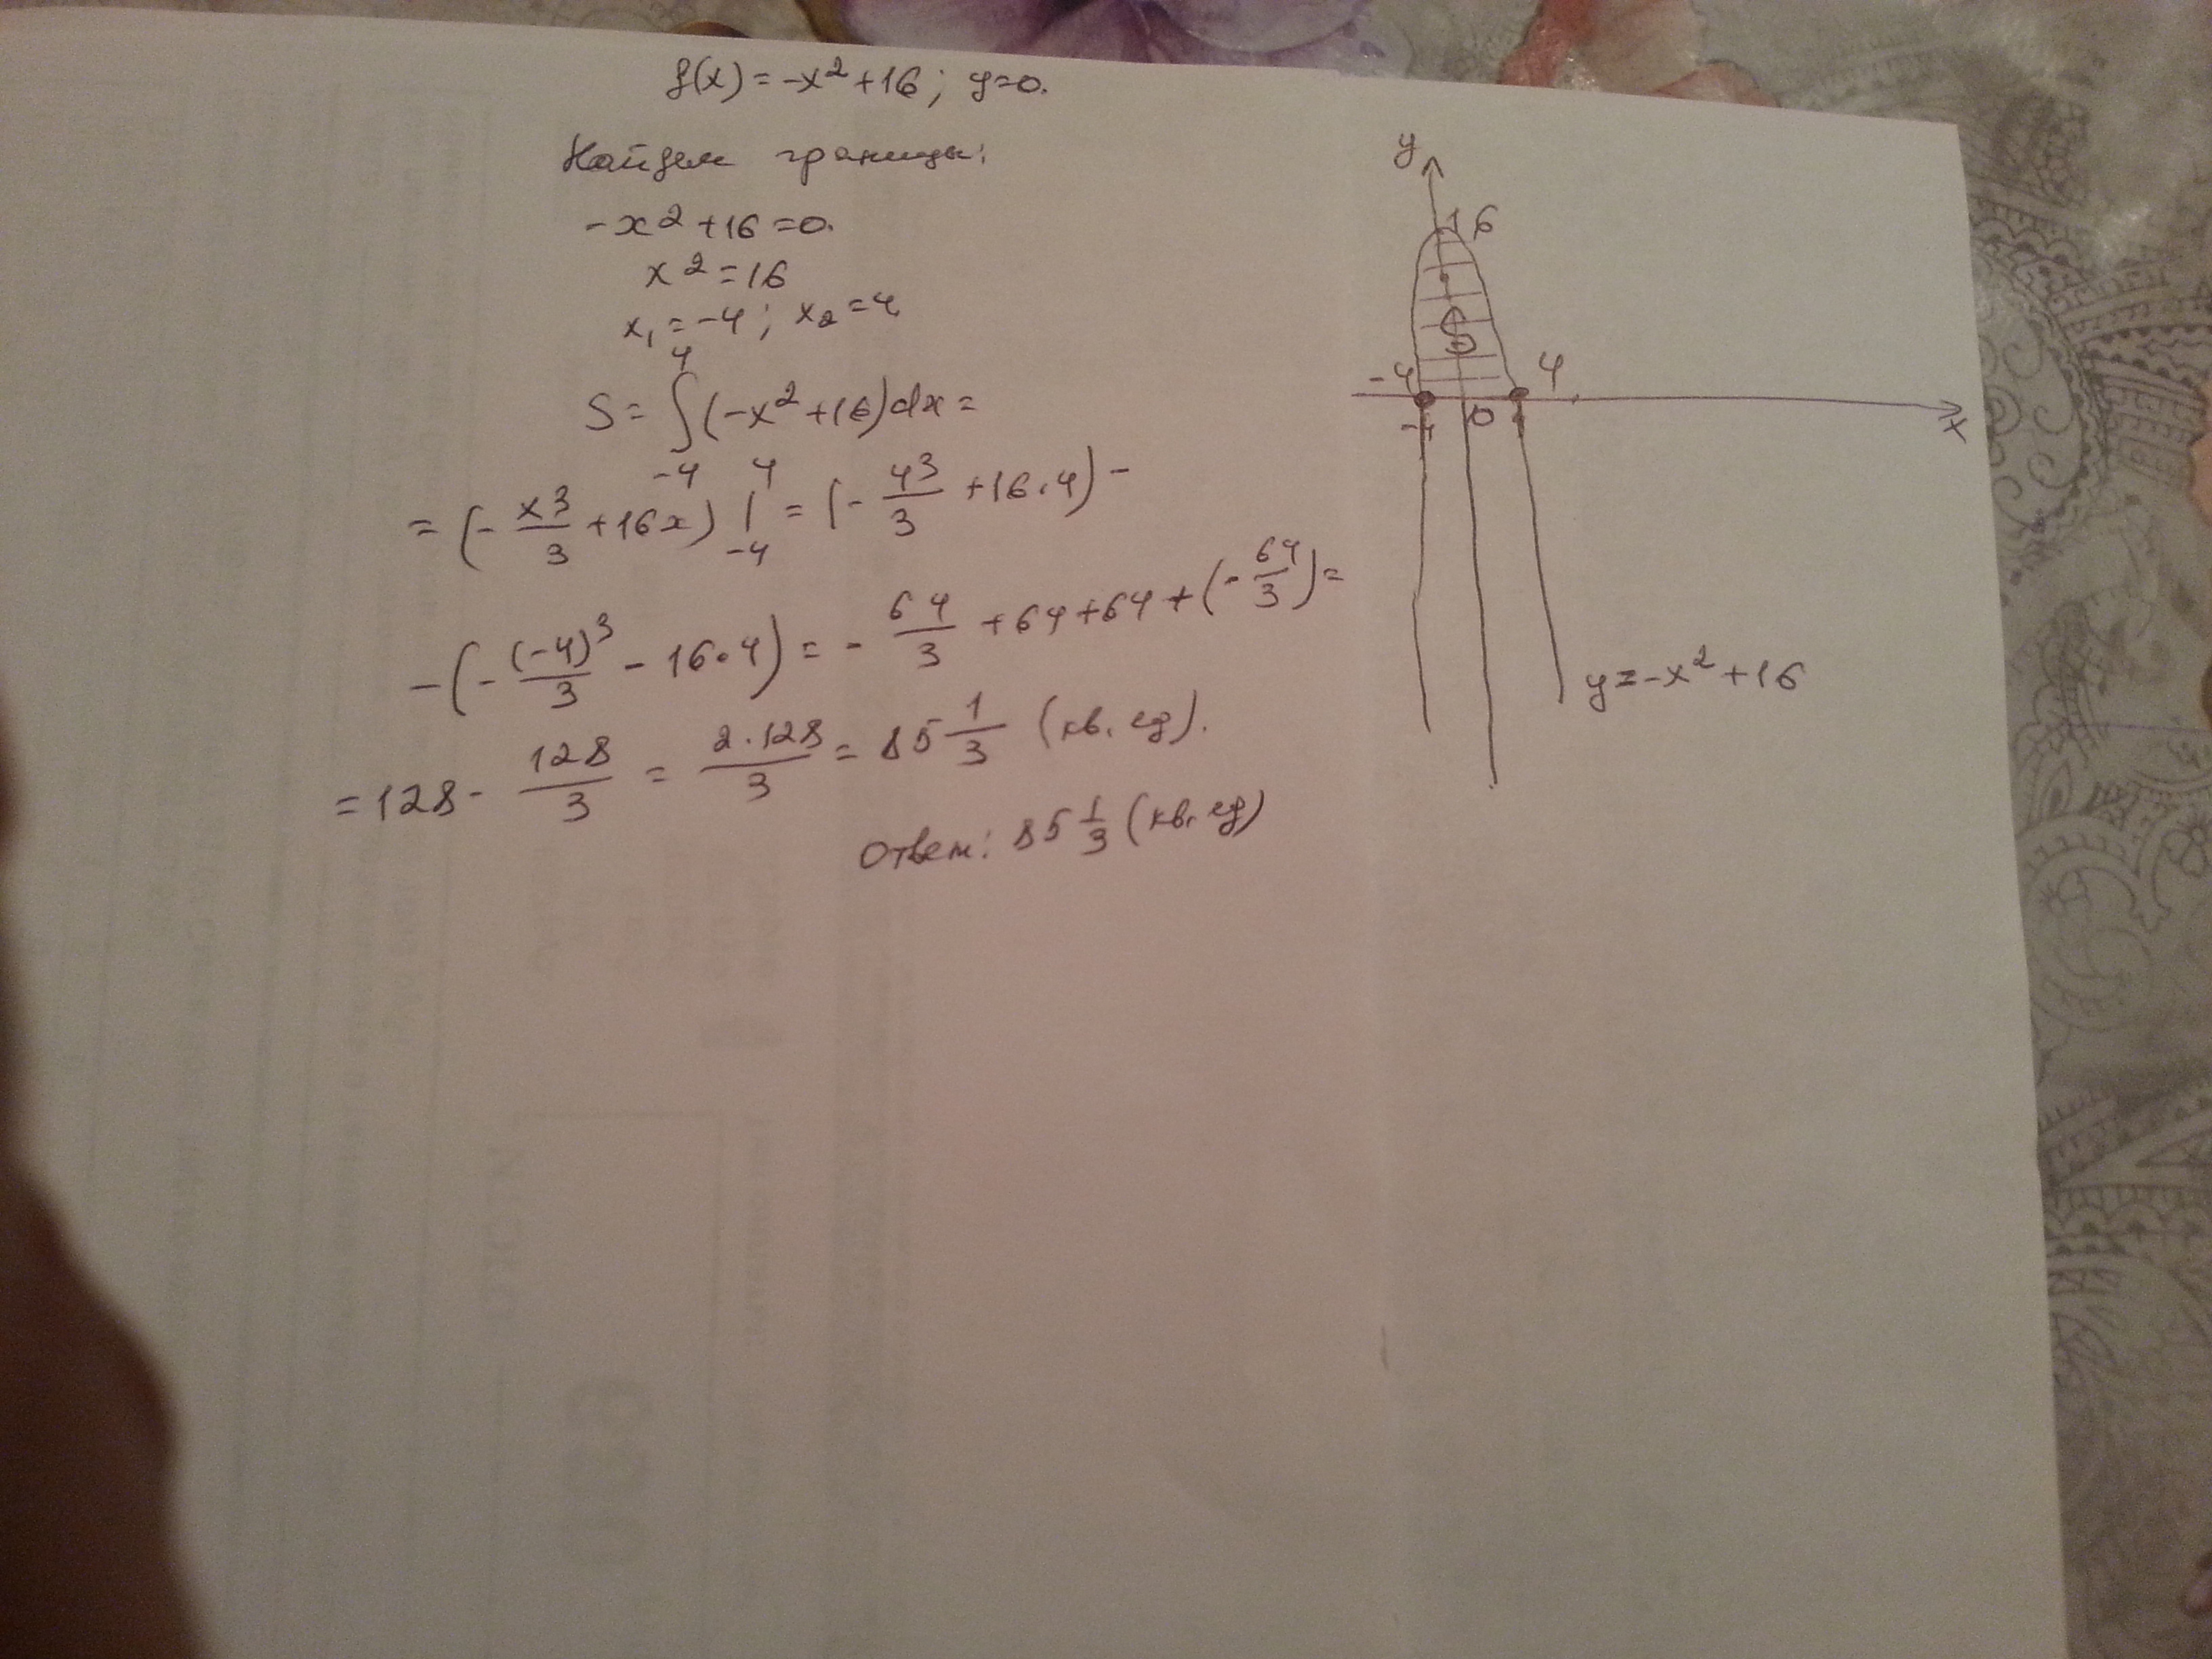 f(x) = -x² + 16; y=0.
Найдем границы:
-x² + 16 = 0.
x² = 16
x₁ = -4; x₂ = 4
S = ∫₋₄⁴ (-x² + 16)dx =
= (-x³/3 + 16x) |₋₄⁴ = (-4³/3 + 16·4) -
-(-(-4)³/3 - 16·4) = -64/3 + 64 + 64 + (-64/3) =
= 128 - 128/3 = 2·128/3 = 85 1/3 (кв. ед).
Ответ: 85 1/3 (кв. ед)
y
16
S
-4
4
-4
0
x
y = -x² + 16